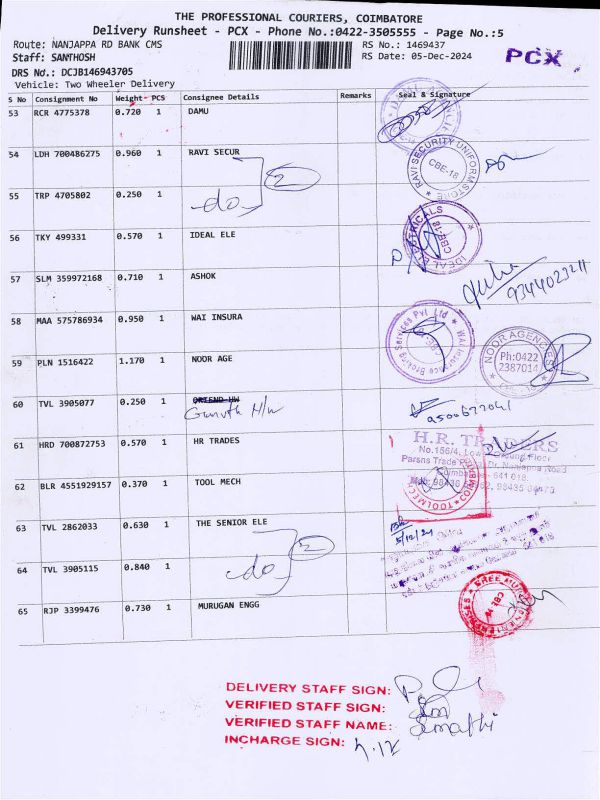 THE PROFESSIONAL COURIERS, COIMBATORE
Delivery Runsheet - PCX - Phone No.:0422-3505555 - Page No.:5
Route: NANJAPPA RD BANK CMS
RS No.: 1469437
Staff: SANTHOSH
RS Date: 05-Dec-2024
PCX
DRS No.: DCJB146943705
Vehicle: Two Wheeler Delivery
S No Consignment No Weight PCS Consignee Details Remarks Seal & Signature
53 RCR 4775378 0.720 1 DAMU
54 LDH 700486275 0.960 1 RAVI SECUR
RAVI SECURITY UNIFORM STORE
CBE-18
2
55 TRP 4705802 0.250 1 do
56 TKY 499331 0.570 1 IDEAL ELE
IDEAL ELECTRICALS
CBE-18
57 SLM 359972168 0.710 1 ASHOK
9344023211
58 MAA 575786934 0.950 1 WAI INSURA
WAI Insurance Broking Services Pvl Ltd
59 PLN 1516422 1.170 1 NOOR AGE
NOOR AGENCIES
Ph:0422
2387014
60 TVL 3905077 0.250 1
H/W
61 HRD 700872753 0.570 1 HR TRADES
H.R. TRADERS
No.156/4, Low
Floor
Parsns Trade
Dr. Nanjappa Road
Coimbatore - 641 018.
62 BLR 4551929157 0.370 1 TOOL MECH
TOOLMECH
63 TVL 2862033 0.630 1 THE SENIOR ELE
5/12/24
2
64 TVL 3905115 0.840 1 do
65 RJP 3399476 0.730 1 MURUGAN ENGG
SREE
DELIVERY STAFF SIGN:
VERIFIED STAFF SIGN:
VERIFIED STAFF NAME:
INCHARGE SIGN: